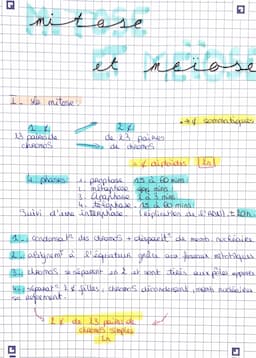 mitose
et méiose
I - La mitose
→ ¢ somatiques
1 ¢
2 ¢
23 paires de
de 23 paires
chromos
de chromos
→ ¢ diploïdes 2n
4 phases: 1. prophase 15 à 60 mins
2. métaphase mins
3. anaphase 2 à 3 mins
4. télophase 15 à 60 mins
Suivi d'une interphase. (réplication de l'ADN) ± 20h
1. condensat° des chromos + disparit° de memb. nucléaire
2. alignemt à l'équateur grâce aux fuseaux mitotiques
3. chromos se séparent en 2 et sont tirés aux pôles opposés
4. séparat° 2 ¢ filles, chromos décondensent, memb nucléaire
se reforment.
→ 2 ¢ de 23 paires de
chromos simples
2n